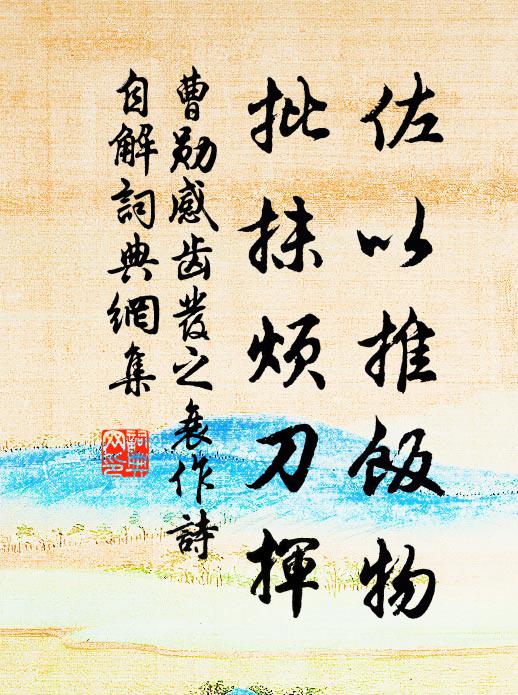 佐以推飯物
批抹煩刀揮
曹勛感齒發之衰作詩
自解詞典網集